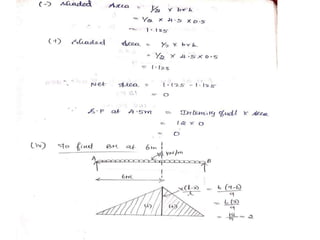 (-) Shaded Area = 1/2 x b x h
= 1/2 x 4.5 x 0.5
= 1.125
(+) Shaded Area = 1/2 x b x h
= 1/2 x 4.5 x 0.5
= 1.125
Net Area = 1.125 - 1.125
= 0
S.F at 4.5m = Intensity of udl x Area
= 0
(iv) To find BM at 6m
A
B
6m
= 6(9-6)/9
= 6(3)/9
= 18/9 = 2